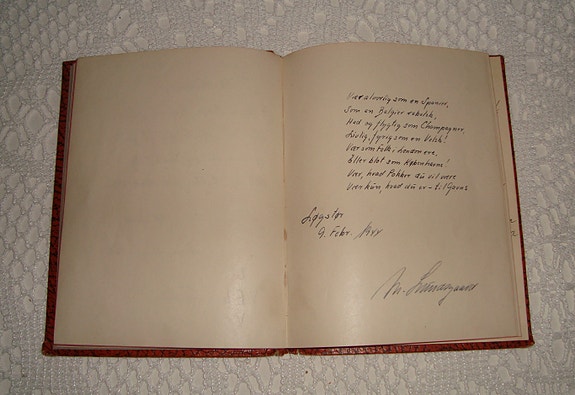 Vær alvorlig som en Spanier,
Som en Belgier rebelsk,
Hed og flygtig som Champagner,
Livlig, fyrig som en Velsk!
Vær som Folk
Eller blot som København!
Vær, hvad Pokker du vil være
Vær kun, hvad du er - til Gavns
Løgstør
9. Febr. 1944
M.